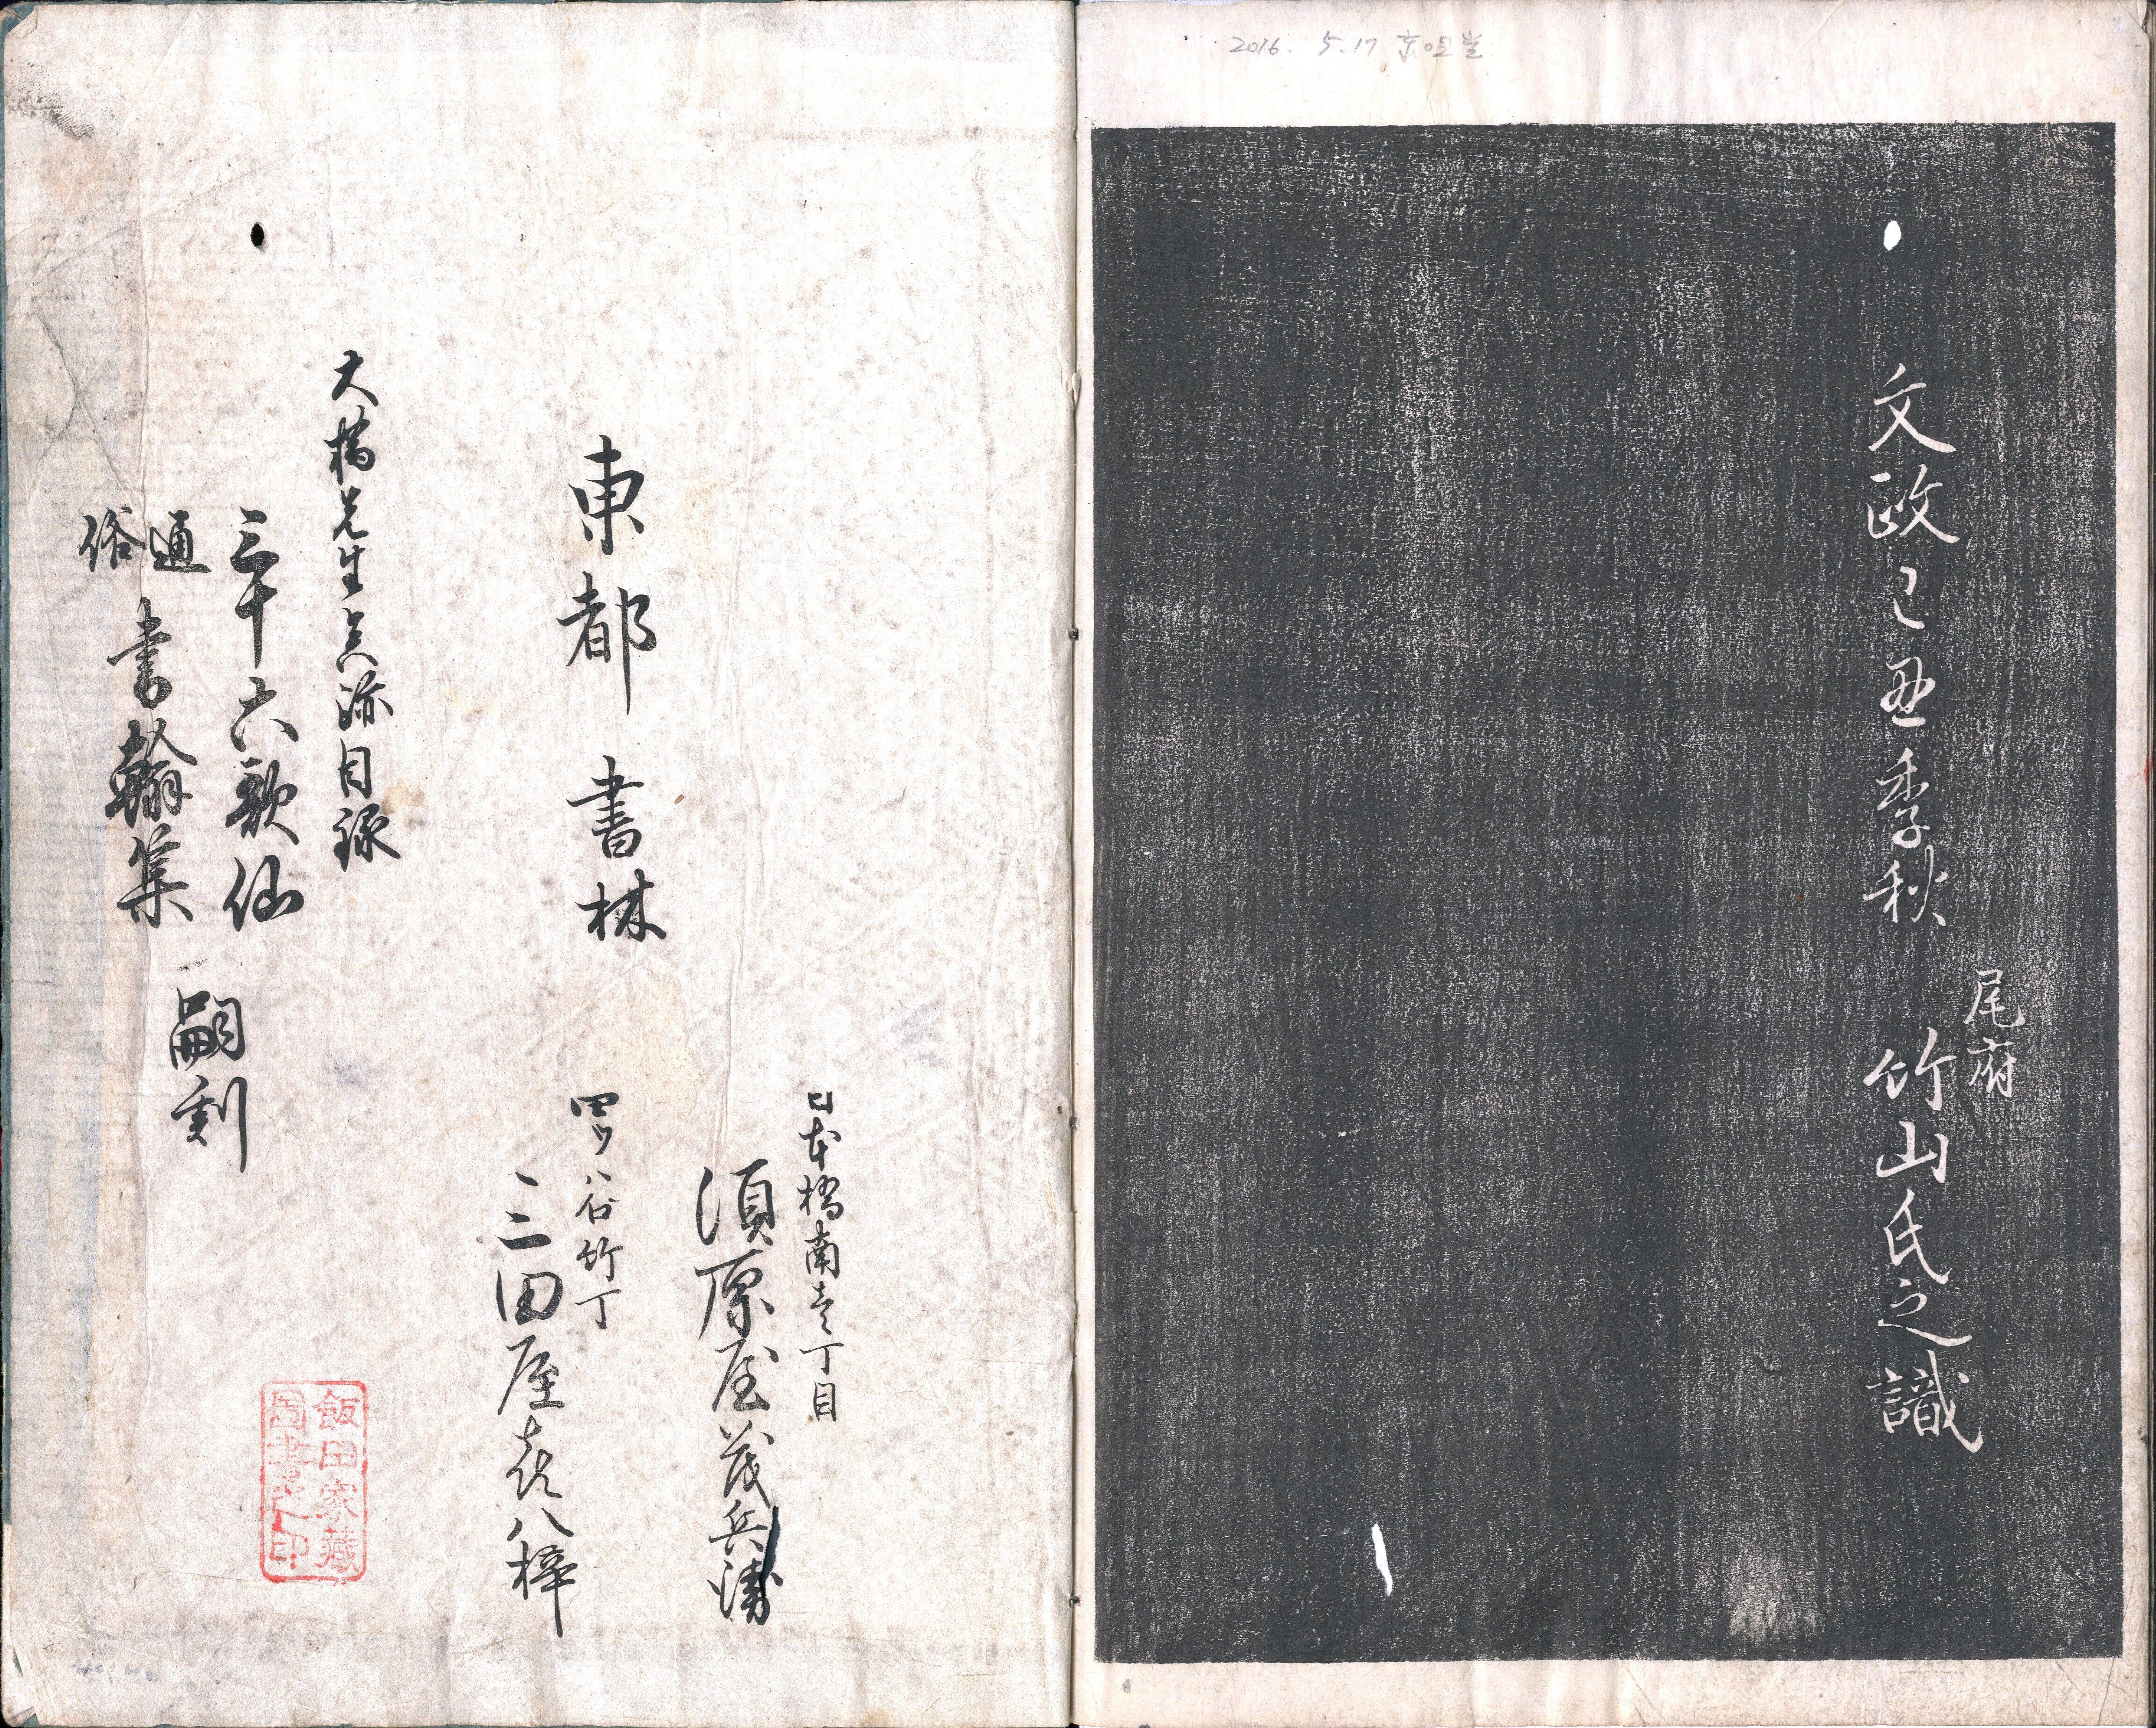 2016. 5.17
尾府
文政己丑季秋 竹山氏之識
日本橋南壱丁目
須原屋茂兵衛
四ツ谷竹丁
三田屋喜八梓
東都書林
大橋先生真跡目録
三十六歌仙
通俗書翰集
嗣刻
飯田家蔵
図書之印